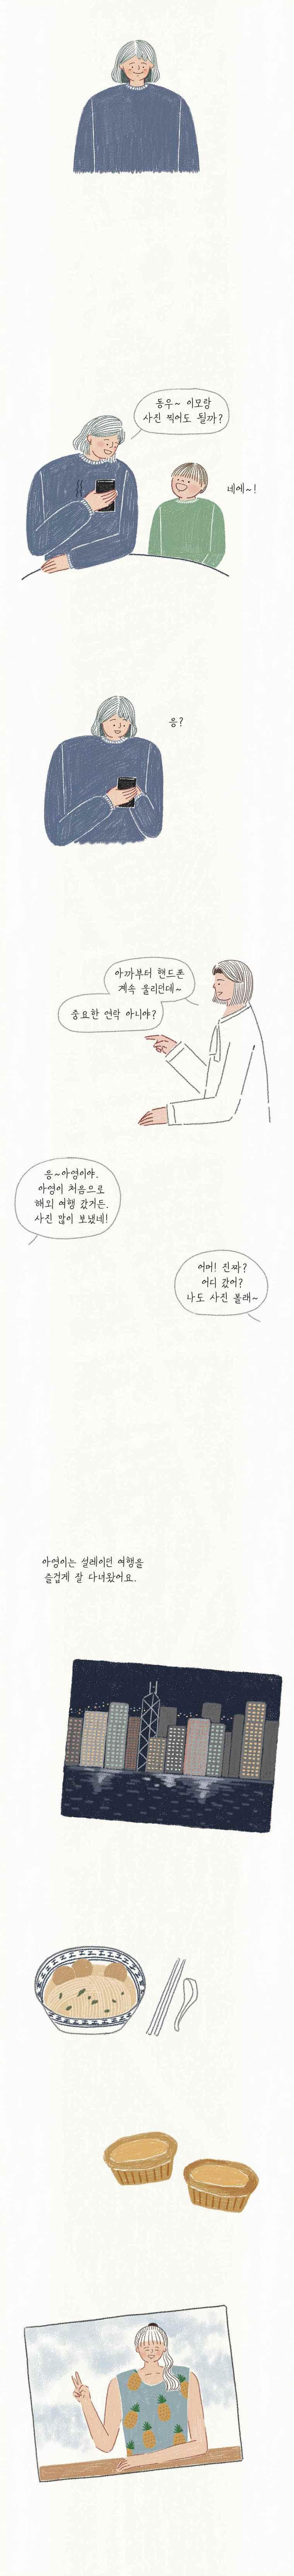 동우~ 이모랑
사진 찍어도 될까?
네에~!
응?
아까부터 핸드폰
계속 울리던데~
중요한 연락 아니야?
응~아영이야.
아영이 처음으로
해외 여행 갔거든.
사진 많이 보냈네!
어머! 진짜?
어디 갔어?
나도 사진 볼래~
아영이는 설레이던 여행을
즐겁게 잘 다녀왔어요.